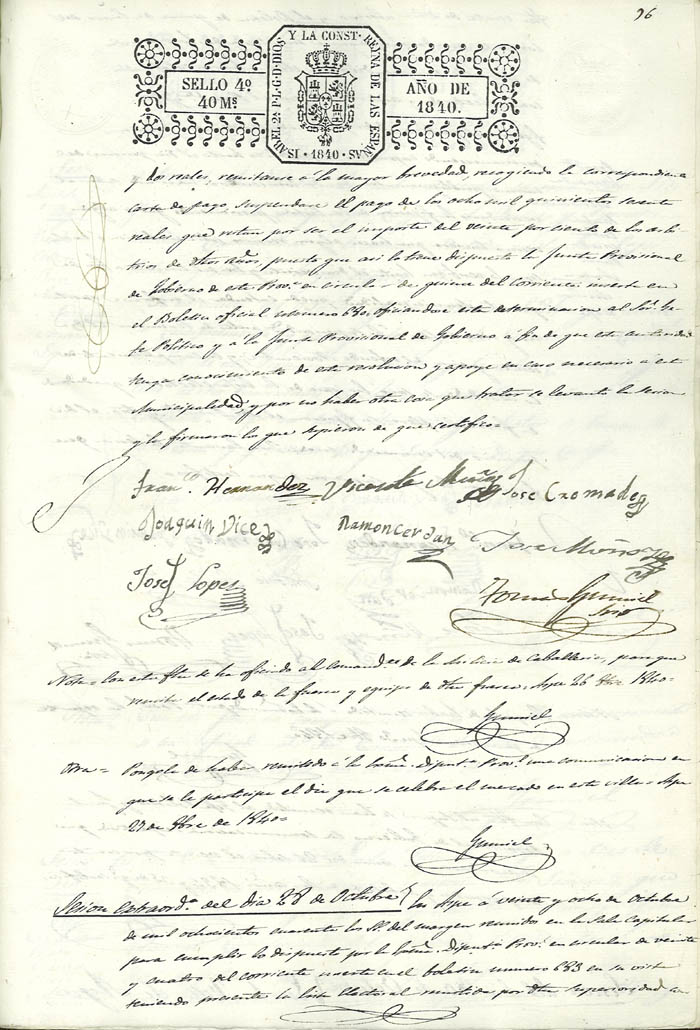 96
ISABEL 2ª P.L.G.D.DIOS Y LA CONST. REYNA DE LAS ESPAÑAS · 1840 ·
SELLO 4º
40 Mˢ
AÑO DE
1840.
y dos reales, remitanse á la mayor brevedad, recogiendo la correspondiente
carta de pago, suspendase el pago de los ocho mil quinientos sesenta
reales que restan por ser el importe del veinte por ciento de los arbi-
trios de dhos años, puesto que asi lo tiene dispuesto la Junta Provisional
de Gobierno de esta Provª en circular de quince del corriente inserta en
el Boletin oficial numero 680, oficiandose esta determinacion al Sor. Ge-
fe Politico y á la Junta Provisional de Gobierno á fin de que esta autoridad
tenga conocimiento de esta resolucion y apoye en caso necesario á esta
Municipalidad, y por no haber otra cosa que tratar se levanta la sesion
y la firmaron los que supieron de que certifico=
Franco. Hernandez Vicente Muñoz Jose Cromades
Joaquin Vicedo Ramon Cerdan Jose Muñoz
Josef Lopes Tomas Gumiel
Srio
Nota= Con esta fha se ha oficiado al Comandte de la de Caballeria, para que
remita el estado de la fuerza y equipo de dha fuerza. Aspe 26 8bre 1840=
Gumiel
Otra= Pongola de haber remitido á la Exma. Diputn Provl. una comunicacion en
que se le participa el dia que se celebra el mercado en esta villa= Aspe
27 de 8bre de 1840=
Gumiel
Sesion extraordª del dia 28 de Octubre En Aspe á veinte y ocho de Octubre
de mil ochocientos cuarenta los SS. del margen reunidos en la Sala Capitular
para cumplir lo dispuesto por la Exma. Diputn Provl. en circular de veinte
y cuatro del corriente inserta en el boletin numero 683 en su vista
teniendo presente la lista electoral remitida por dha superioridad